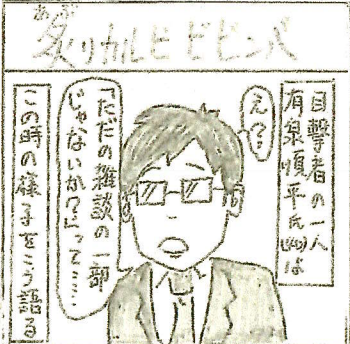 あぶ
炙りカルビビビンバ
目撃者の一人
有泉順平氏は
え?…
「ただの雑談の一部
じゃないか?」って……
この時の様子をこう語る